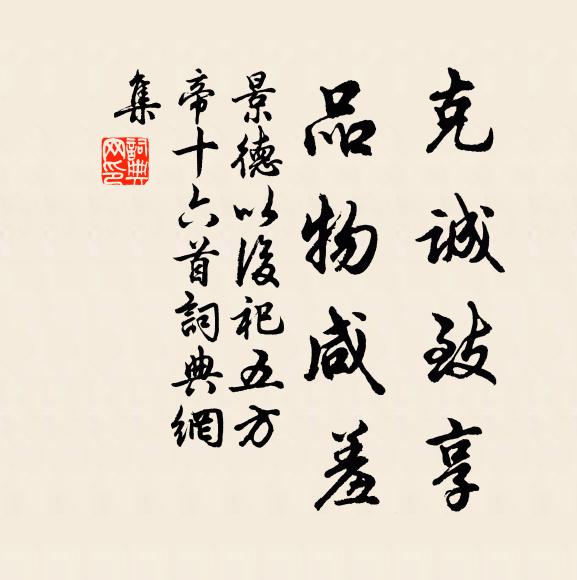 克誠致享
品物咸羞
景德以後祀五方
帝十六首詞典網
集
詞典網印